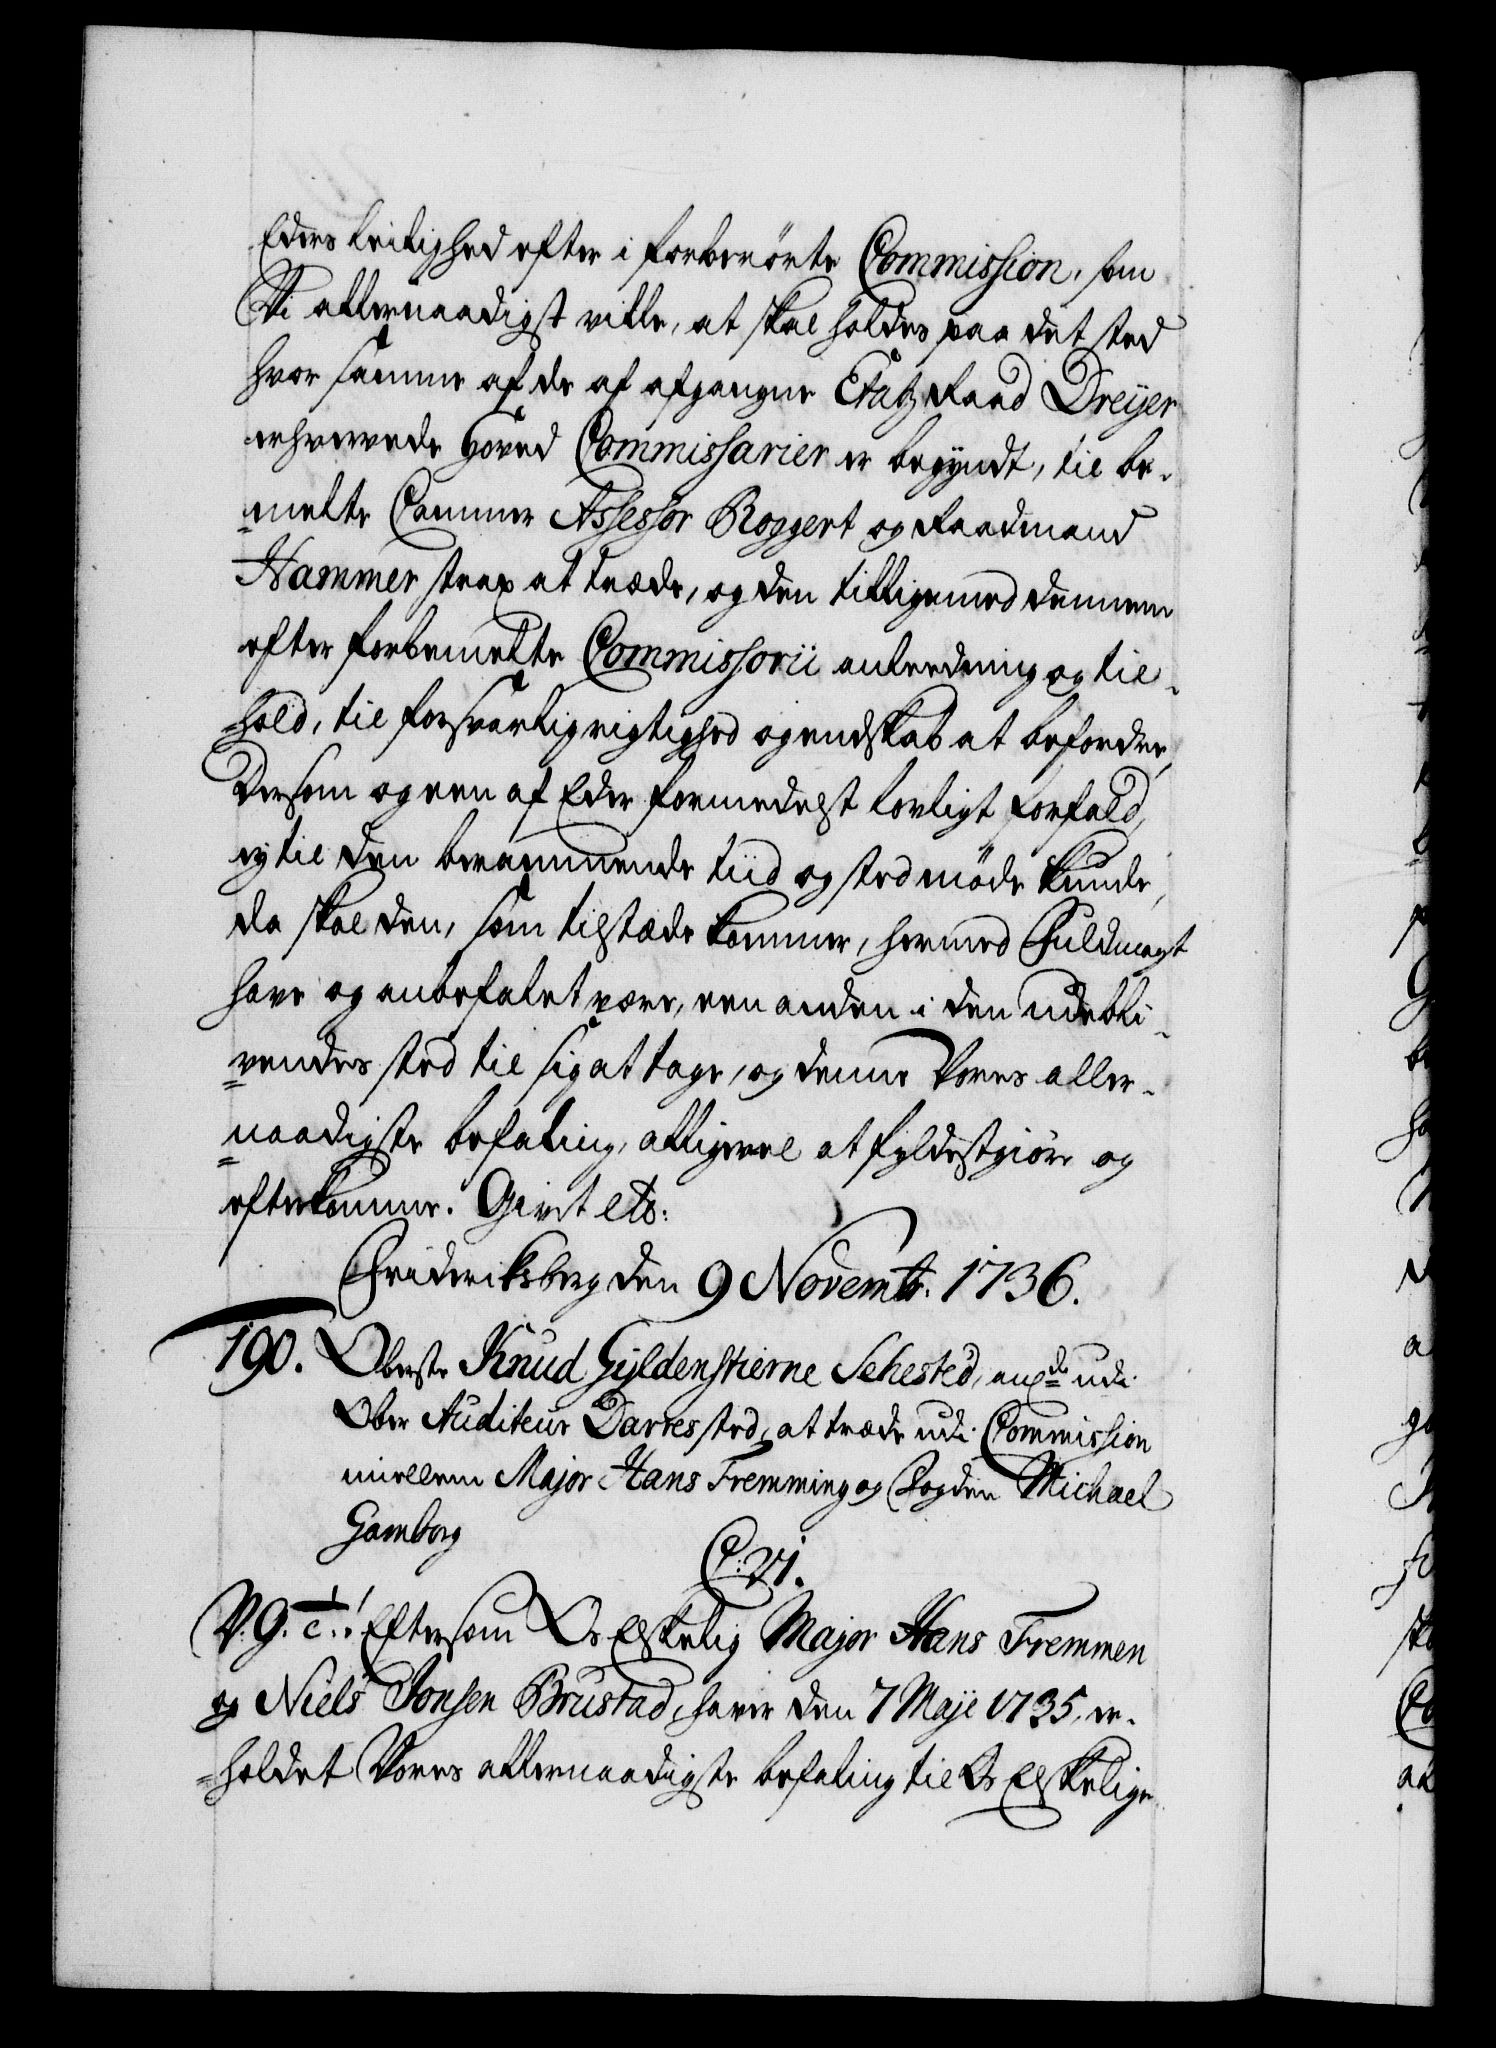 Eders leilighed efter i forberörte Commission, som
Vi allernaadigst ville, at skal holdes paa det sted
hvor samme af de af afgangne Etatz Raad Dreÿer
erhvervede Hoved Commissarier er begyndt, til be-
melte Cammer Assessor Roggert og Raadmand
Hammer strax at træde, og den tilligemed dennem
efter forbemelte Commissorii anleedning og til-
hold, til forsvarlig rigtighed og endskab at befordre,
Dersom og een af Eder formedelst lovligt forfald,
ey til den berammende tiid og sted møde kunde,
da skal den, som tilstæde kommer, hermed Fuldmagt
have og anbefalet være, een anden i den udebli-
vendes sted til sig at tage, og denne Vores aller-
naadigste befaling, alligevel at fyldestgiöre og
efterkomme. Givet etc:
Frideriksberg den 9 Novembr. 1736.
190. Oberste Knud Gÿldenstierne Sehested, anxde udi
Ober Auditeur Darres sted, at træde udi Commission
imellem Major Hans Fremming og Fogden Michael
Gamborg
C: VI.
V. G. t.! Eftersom Os Elskelig Major Hans Fremmen
og Niels Jonsen Brustad, haver den 7 Maji 1735, er-
holdet Vores allernaadigste befaling til Os Elskelige